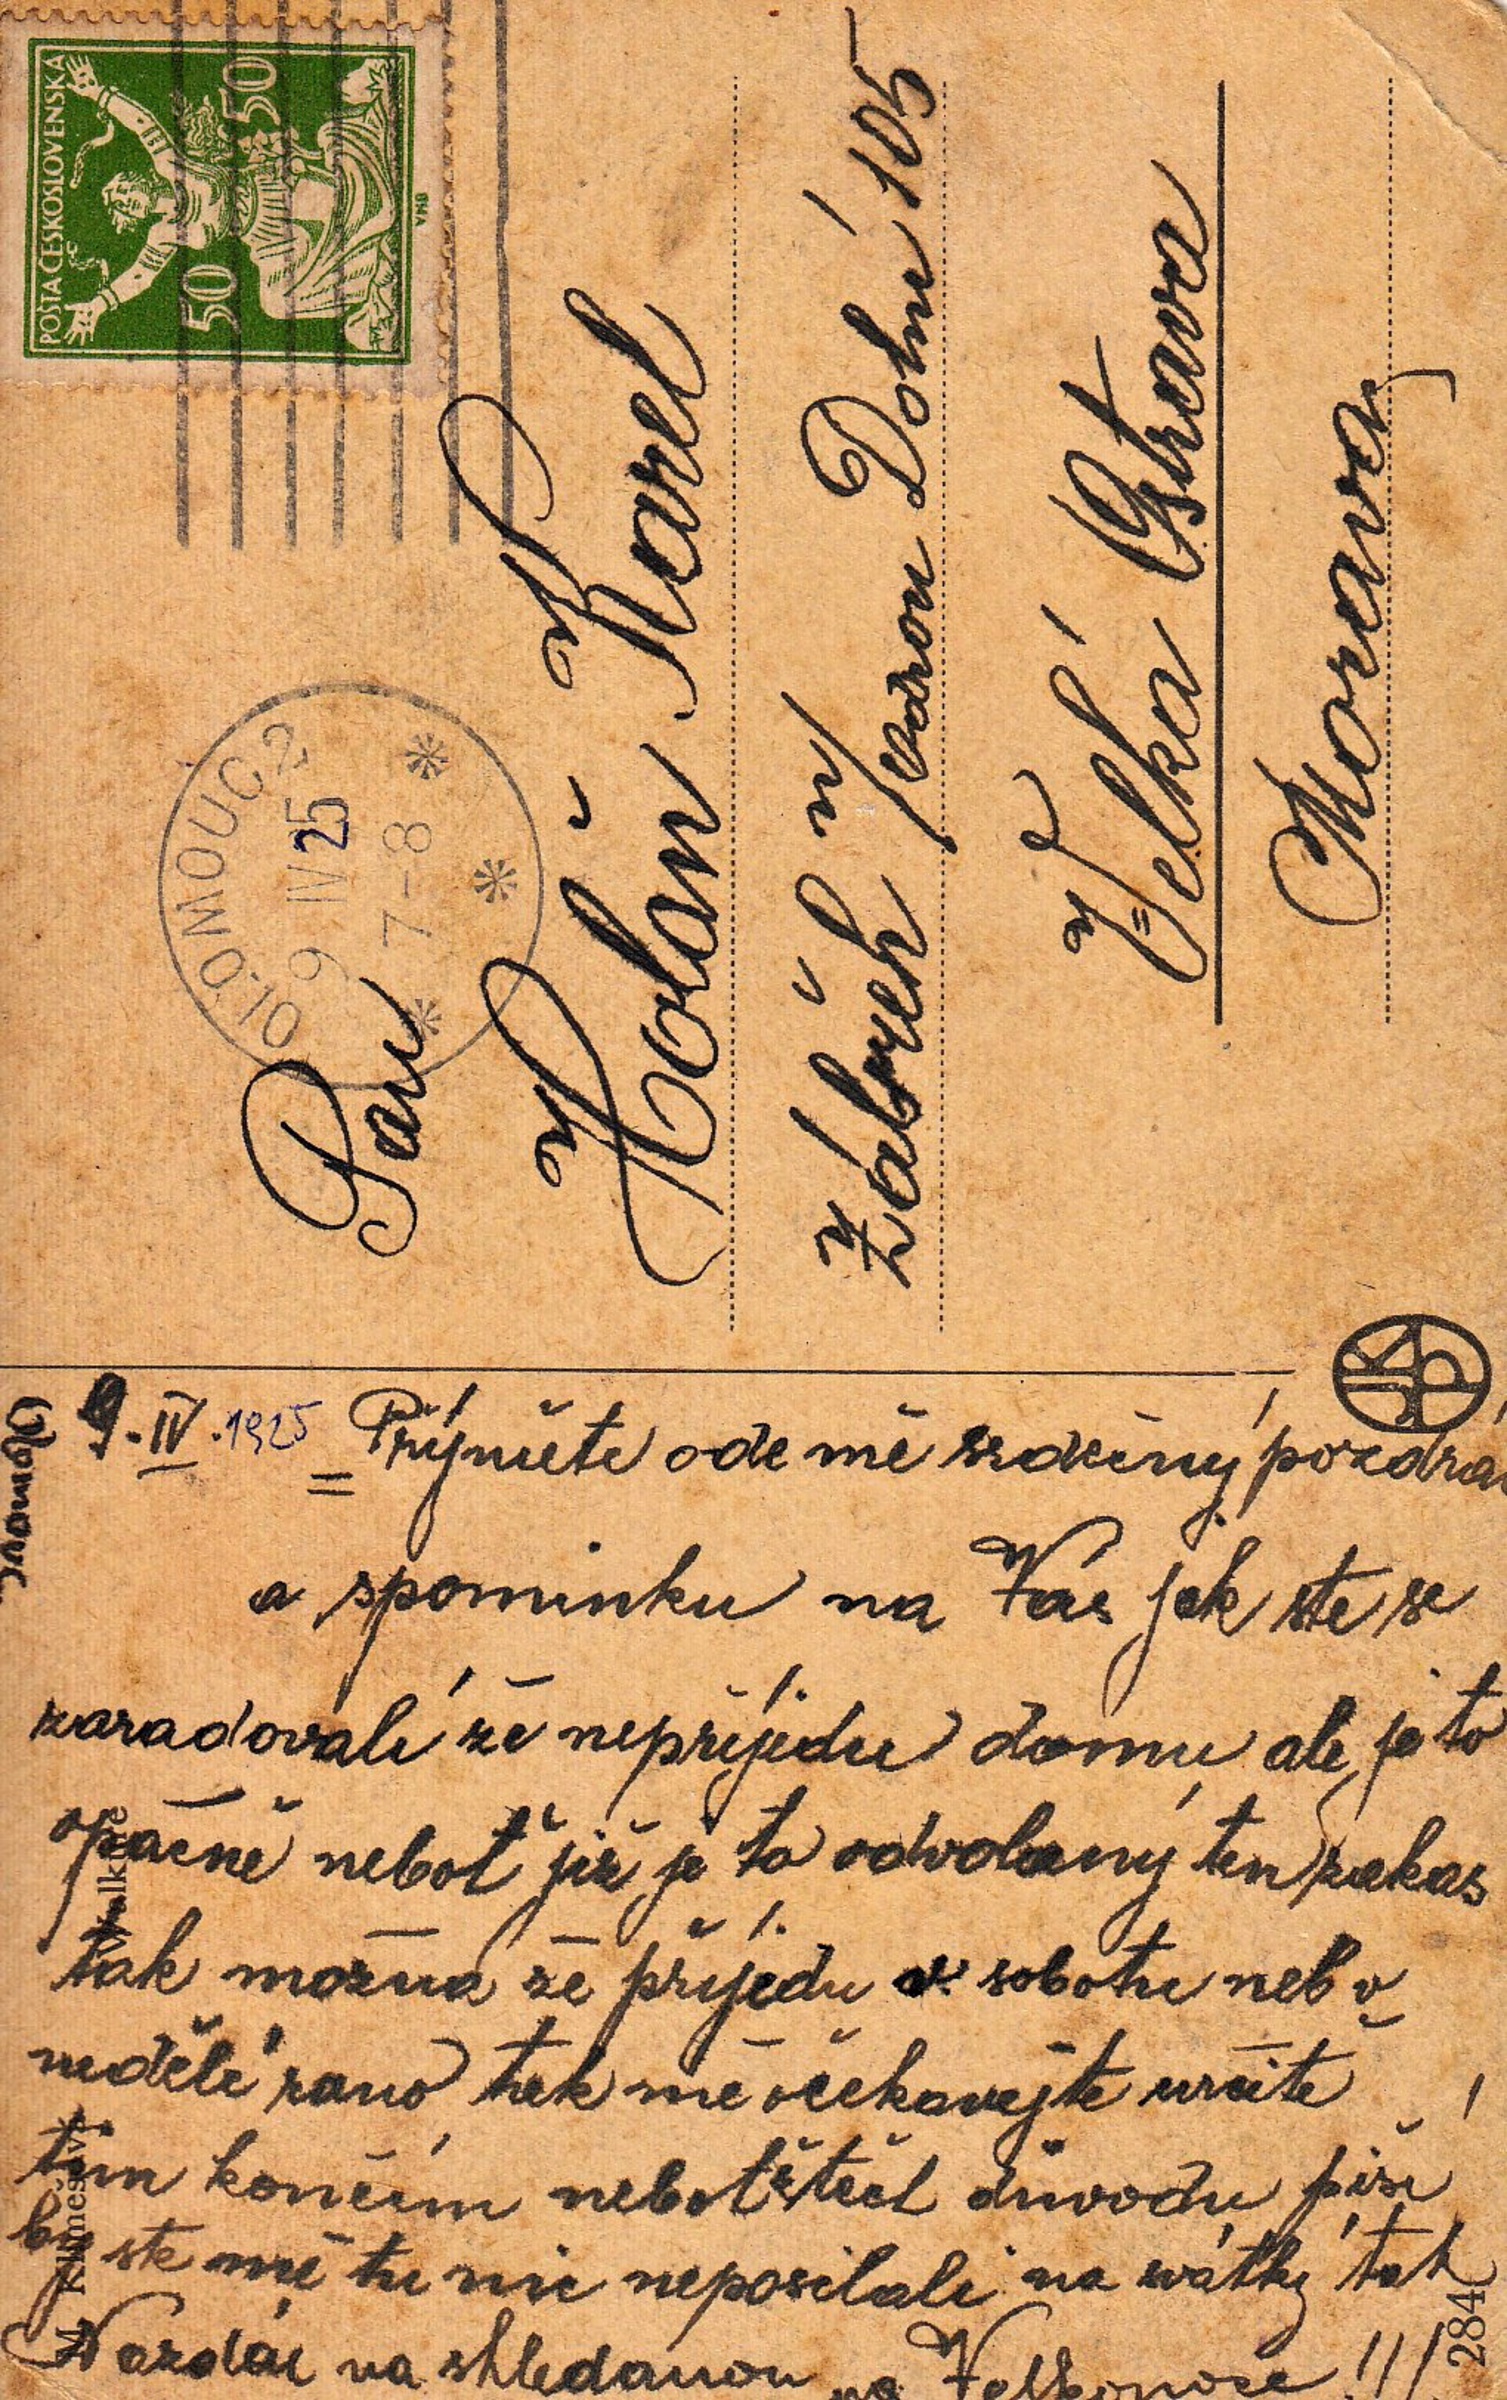 POŠTA ČESKOSLOVENSKA
50 50
OLOMOUC 2
9 IV 25
7-8
Pan
Holaň Karel
Zábřeh n/
Odrou Dolní 105
Velká Ostrava
Morava
Olomouc
9. IV. 1925 = Příjměte ode mě srdečný pozdrav
a spominku na Vás jak ste se
zaradovali že nepříjedu domu ale je to
opačně neboť již je to odvolaný ten zakas
tak možná že příjedu v sobotu neb v
neděli rano tak mě očekavejte určitě
tim končím neboť s teět důvodu piši
by ste mě tu nic neposilali na svátky tak
Nazdar na shledanou na Velkonoce!!!
M. Klimešová
284